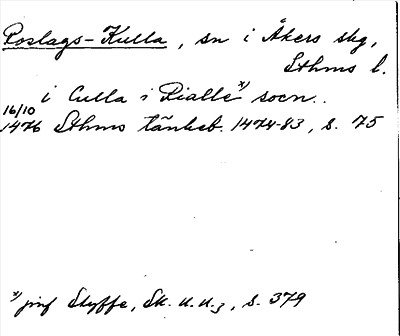 Roslags-Kulla, sn i Åkers skg,
Sthms l.
i Culla i Rialle x) socn..
16/10
1476 Sthms tänkeb. 1474-83, s. 75
x) jmf Styffe, Sk. u. u. 3, s. 379